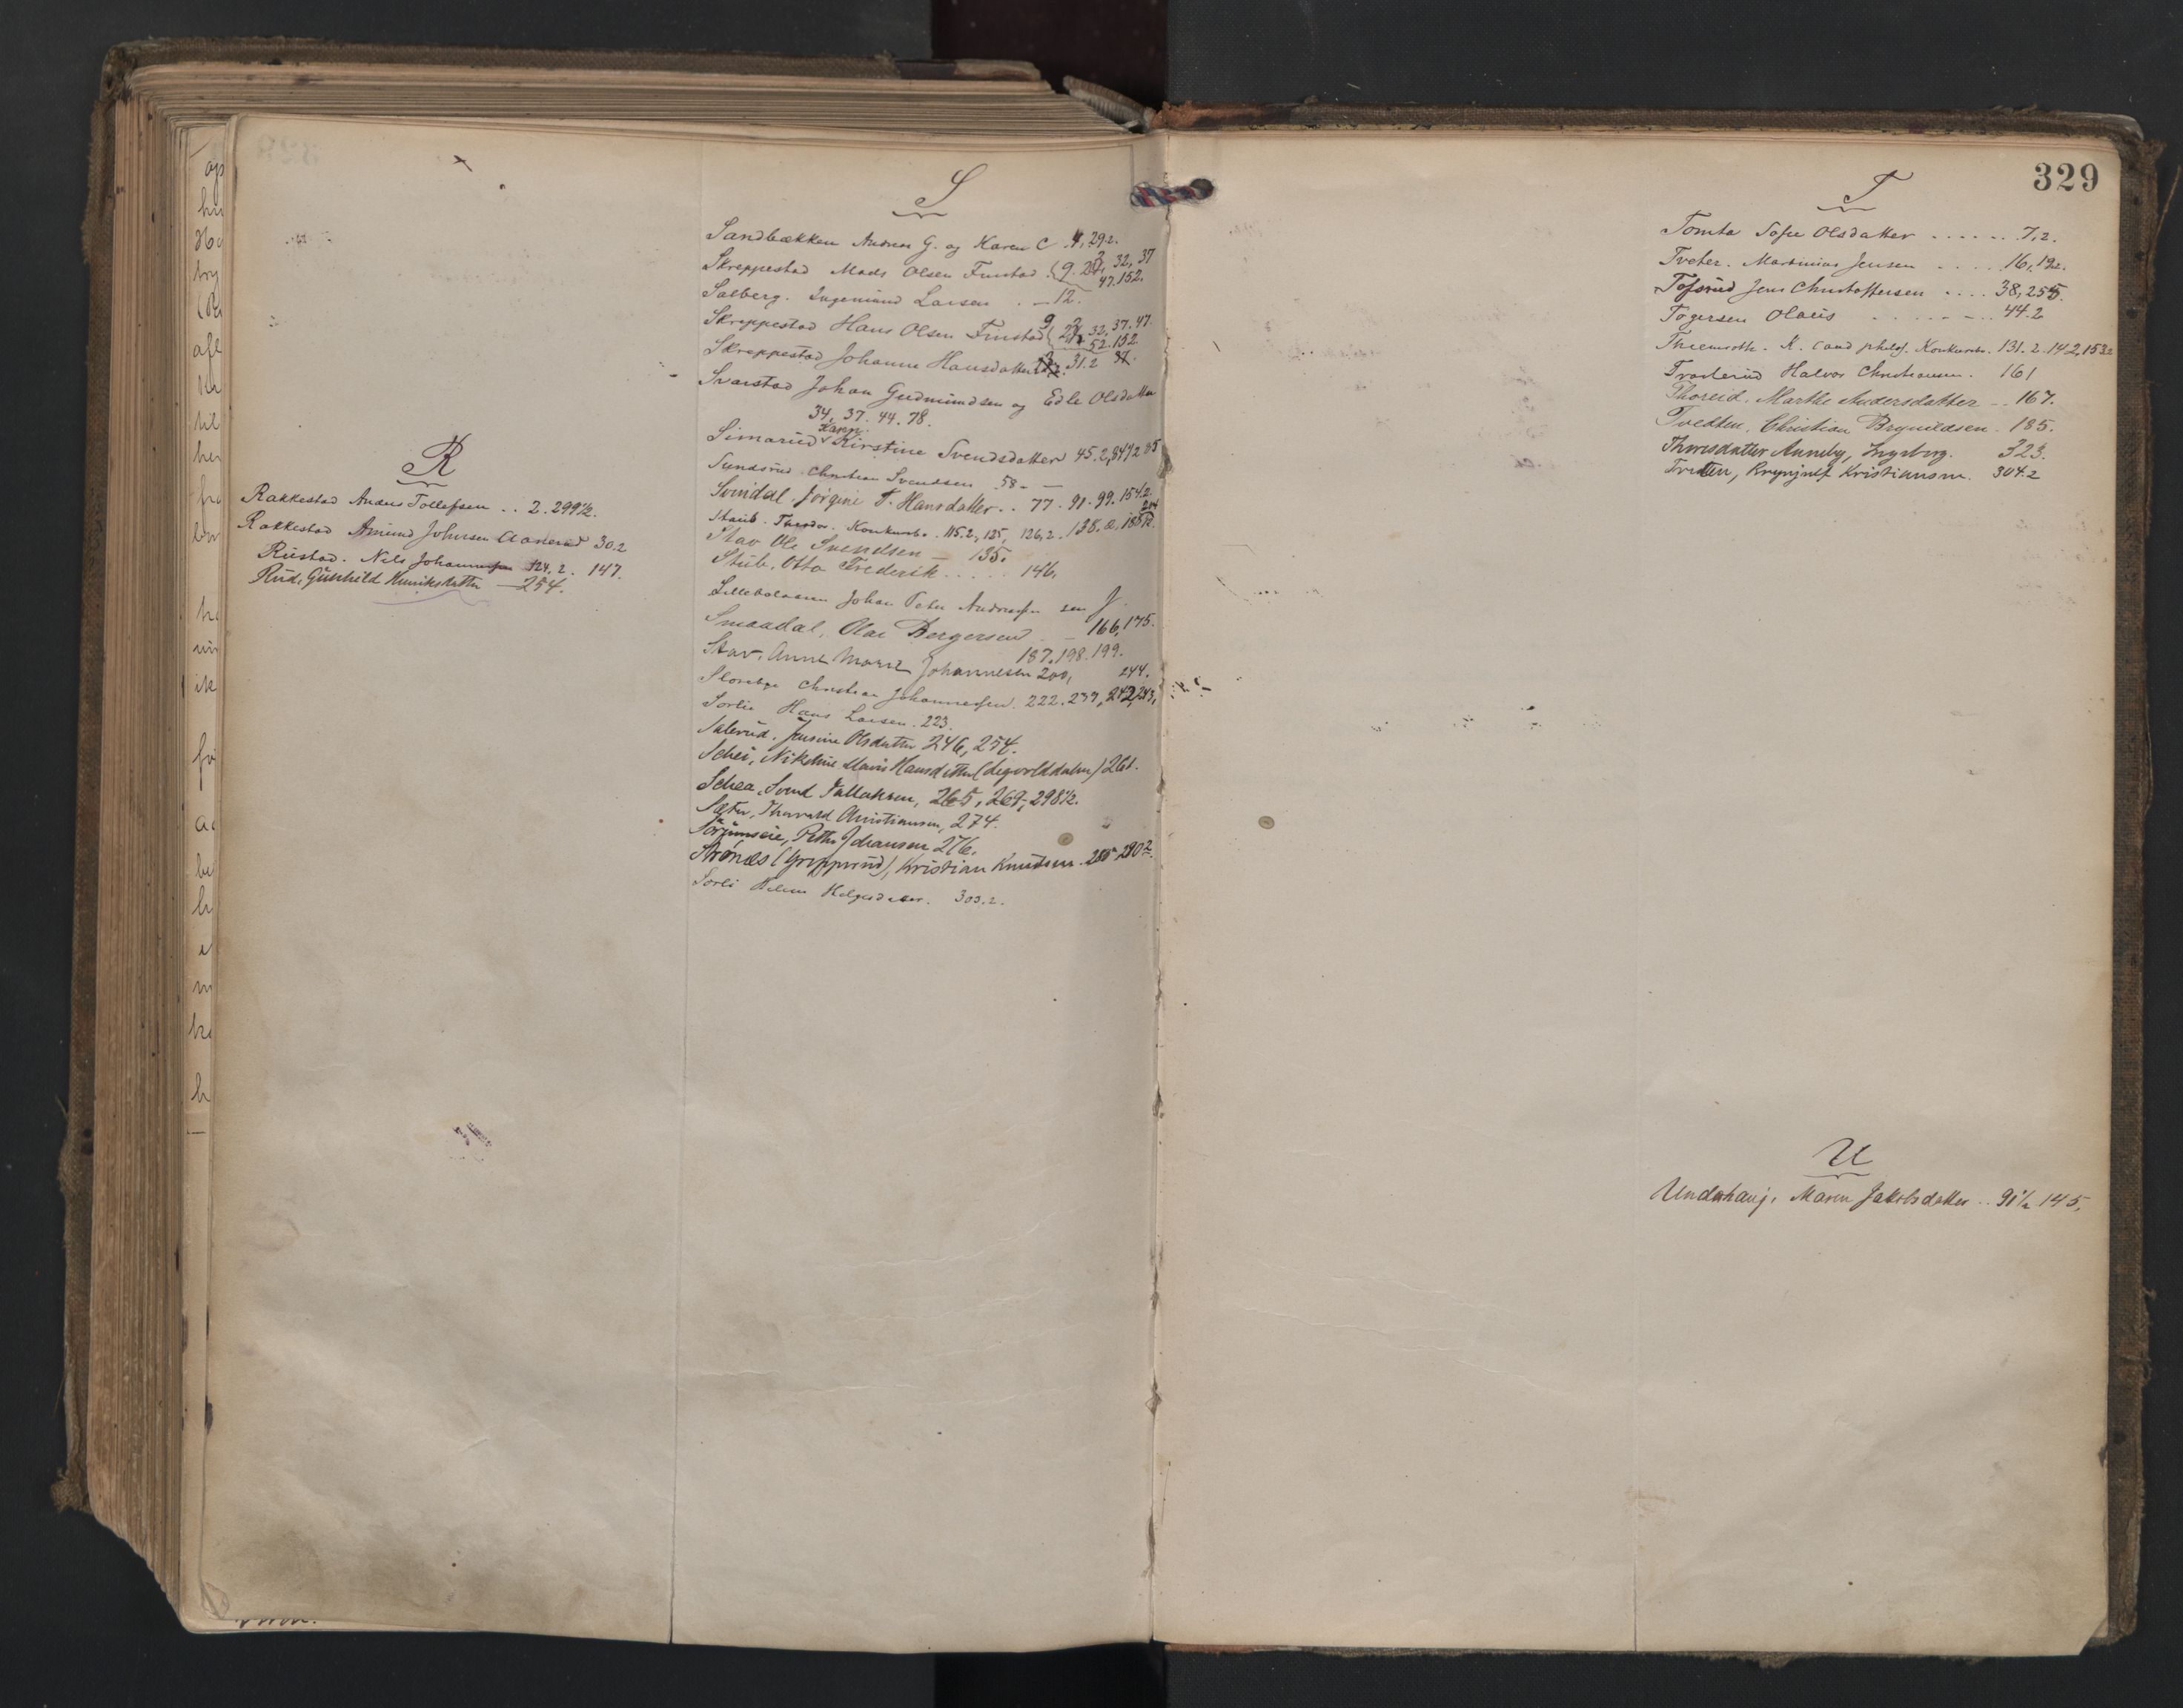 R
Rakkestad Anders Tollefsen .. 2. 299½.
Rakkestad Amund Johnsen Aanerud 30.2
Rustad. Nels Johannessen 124.2. 147.
Rud, Gunhild Henriksdatter — 254.
S
Sandbækken Andreas G. og Karen C. 4, 29.2.
Skreppestad Mads Olsen Finstad. (9. 27, 2 32, 37
47. 152.
Salberg. Ingemund Larsen . — 12.
Skreppestad Hans Olsen Finstad 9 (27. 2 32. 37. 47.
52. 152.
Skreppestad Johanne Hansdatter 31.2 37.
Svarstad Johan Gudmundsen og Edle Olsdatter
34, 37. 44. 78.
Simarud Karen Kirstine Svendsdatter 45.2, 84½ 85
Sundsrud Christian Svendsen 58 — —
Svindal. Jørgine T. Hansdatter .. 77. 91. 99. 154.2.
204
Staib. Theodor. Konkursbo. 115.2, 125, 126,2. 138.
Stav Ole Svendsen — 135.
Stub. Otto Frederik ..... 146.
Johan Peter Andreassen sen J.
Smaadal, Olai Bergersen . — 166, 175.
187. 198. 199.
Stav, Anne Marie Johannesen 200, 244.
Christian Johannessen. 222. 239, 242, 243,
Sorlie Hans Larsen. 223.
Salerud, Jensine Olsdatter 246, 254.
Schei, Nikoline Marie Hansdatter 261.
Schea, Svend Tallaksen, 265, 269, 298½.
Sæter, Thorvald Christiansen, 274.
Sørumseie, Petter Johansen 276.
Strønes (Gripperud), Kristian Knudsen. 280 2.
Sorli Helene Helgesdatter. 303.2.
329
T
Tomta Sofie Olsdatter ...... 7,2.
Tveter. Martinius Jensen .... 16, 19.2.
Tofsrud Jens Christoffersen .... 38, 255.
Togersen Olaus ...... 44.2
K. Cand philos. Konkursbo. 131.2. 142, 153.2
Halvor Christiansen. 161
Thoreid, Marthe Andersdatter — 167.
Tvedten, Christian Brynildsen. 185.
Thoresdatter Anneby, Ingeborg. 323.
Tvetten, Brynjulf Kristiansen. 304.2
U
Underhaug, Maren Jakobsdatter .. 91½ 145.